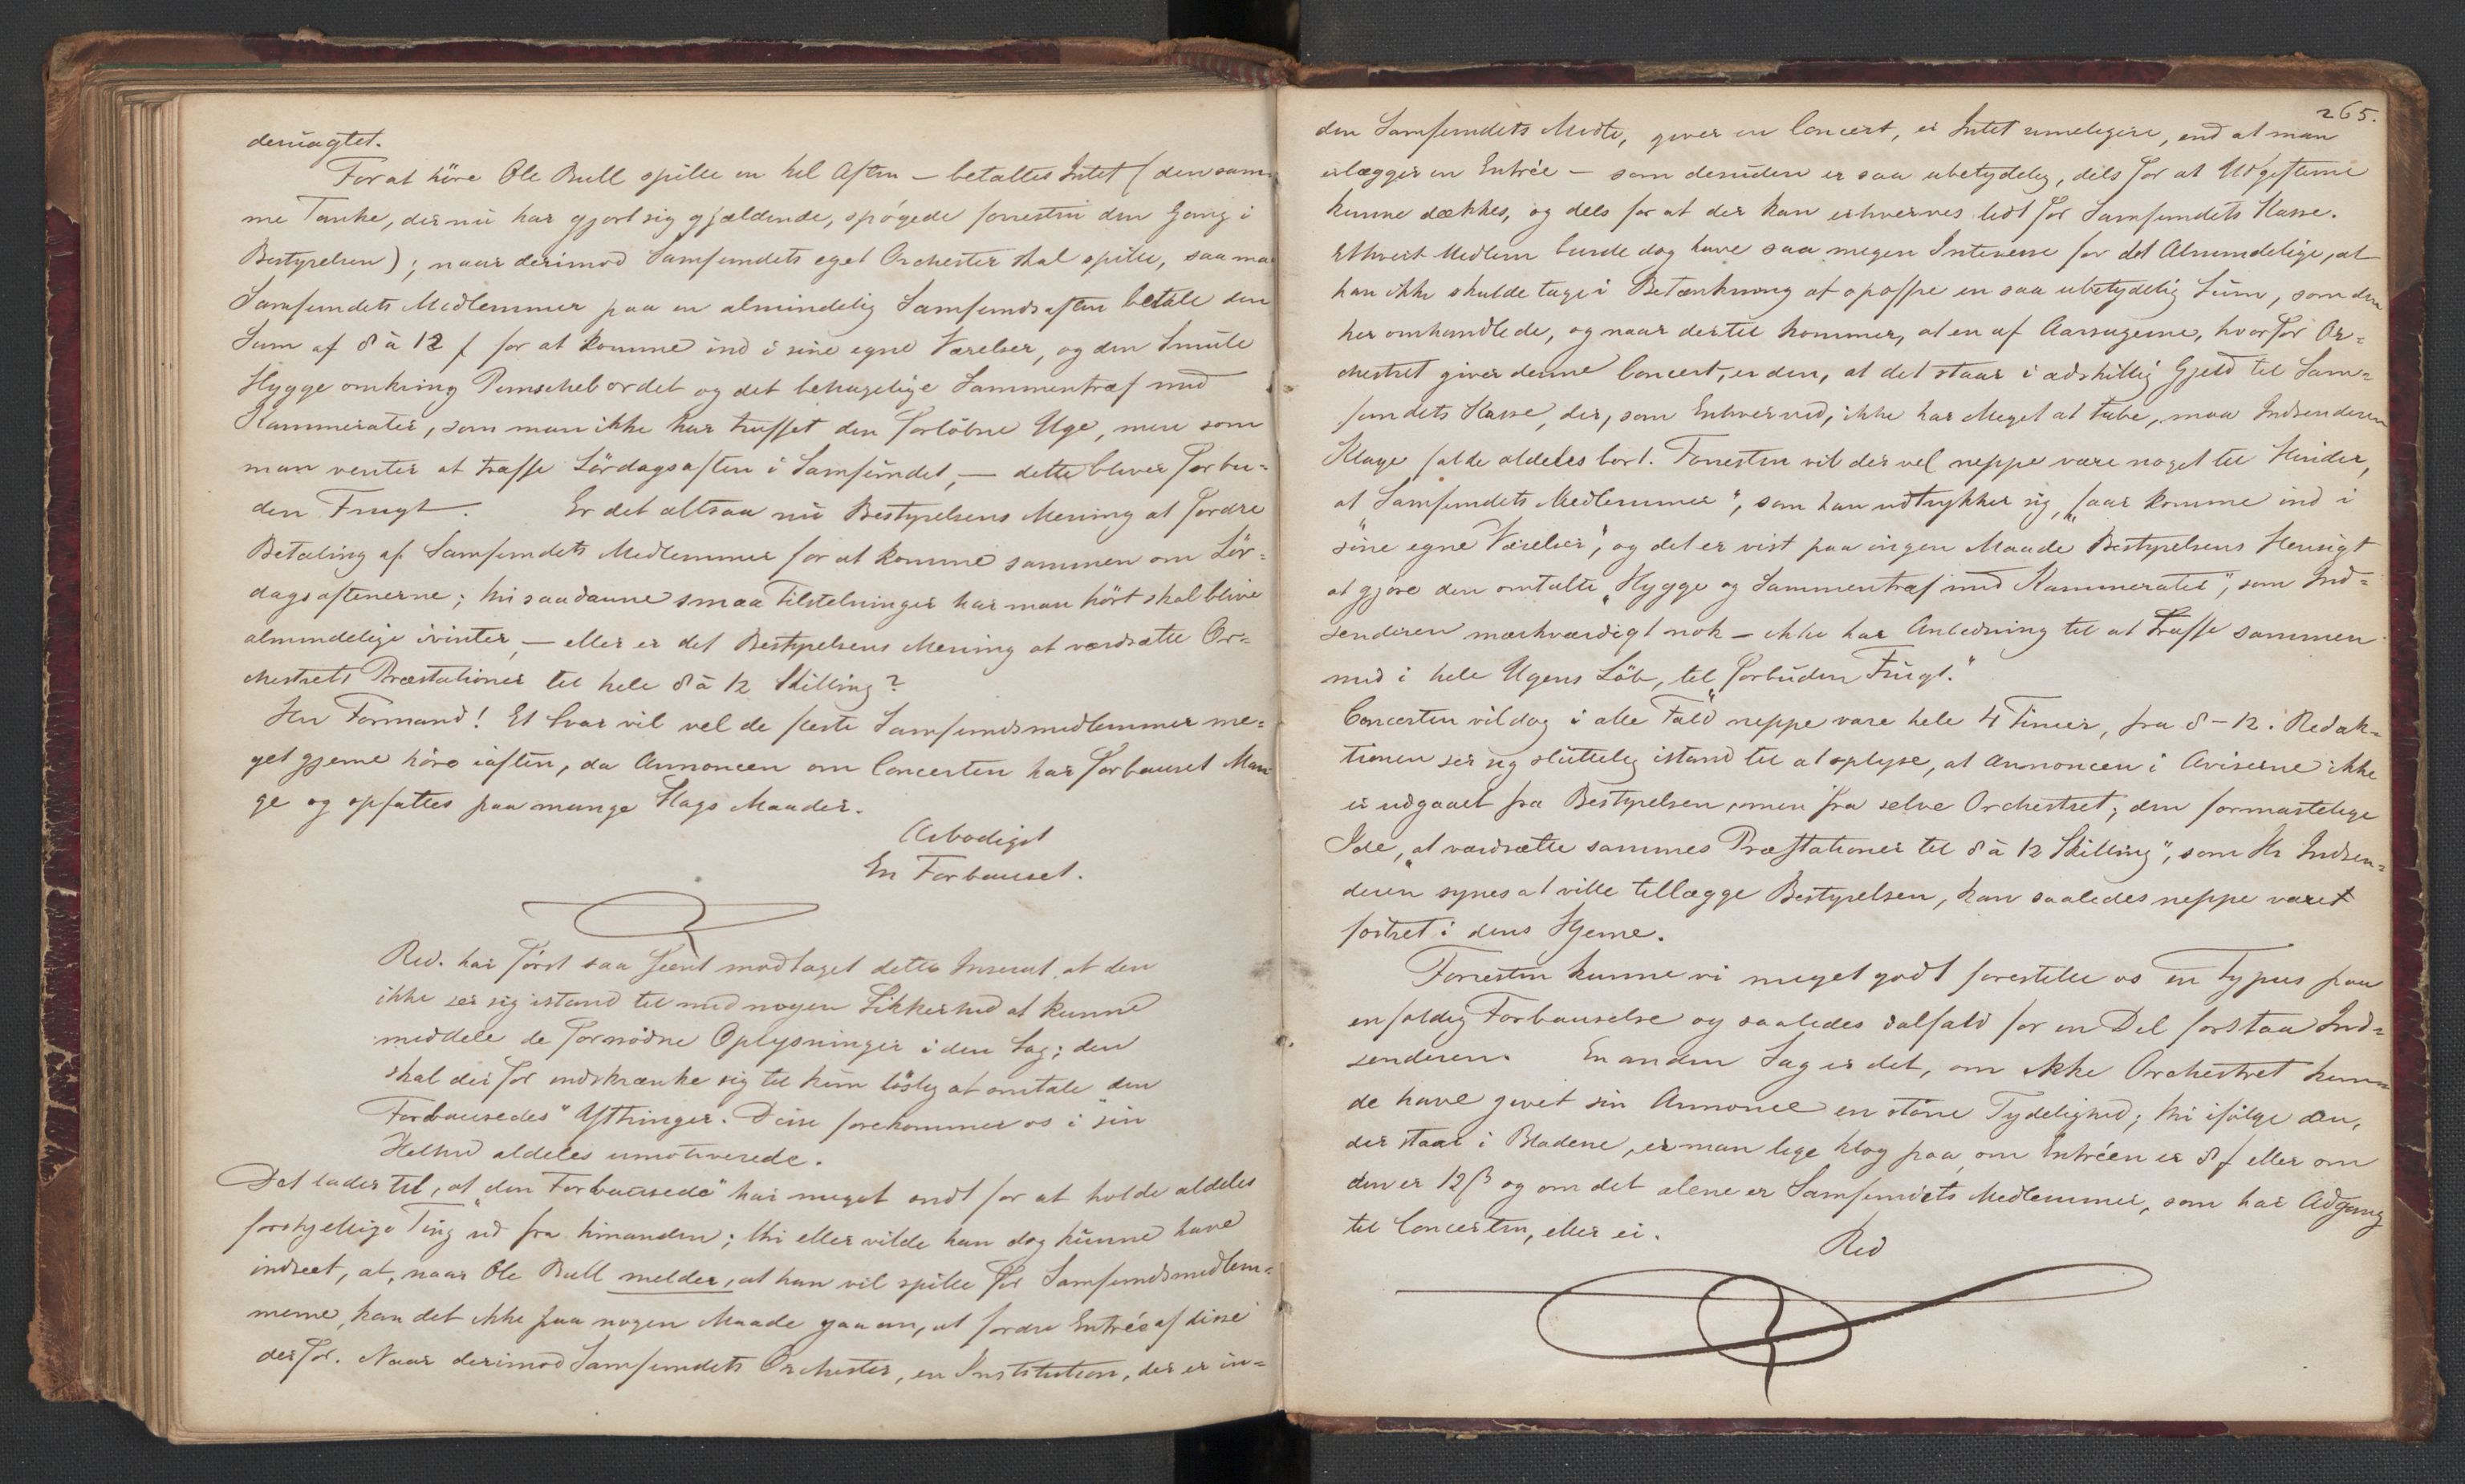 desuagtet.
For at høre Ole Bull spille en hel Aften — betaltes Intet (den sam-
me Tanke, der nu har gjort sig gjældende, spøgede forresten den Gang i
Bestyrelsen); naar derimod Samfundets eget Orchester skal spille, saa maa
Samfundets Medlemmer paa en almindelig Samfundsaften betale den
Sum af 8 à 12 ſ for at komme ind i sine egne Værelser, og den Smule
Hygge omkring Punschebordet og det behagelige Sammentræf med
Kammerater, som man ikke har truffet den forløbne Uge, men som
man venter at træffe Lørdagsaften i Samfundet, — dette bliver forbu-
den Frugt. Er det altsaa nu Bestyrelsens Mening at fordre
Betaling af Samfundets Medlemmer for at komme sammen om Lør-
dagsaftenerne; thi saadanne smaa Tilstelninger har man hørt skal blive
almindelige ivinter, — eller er det Bestyrelsens Mening at værdsætte Or-
chestrets Præstationer til hele 8 à 12 Skilling?
Hr Formand! Et Svar vil vel de fleste Samfundsmedlemmer me-
get gjerne høre iaften, da Annoncen om Concerten har forbauset Man
ge og opfattes paa mange Slags Maader.
Ærbødigst
En Forbauset.
Red. har først saa seent modtaget dette Inserat, at den
ikke ser sig istand til med nogen Sikkerhed at kunne
meddele de fornødne Oplysninger i den Sag; den
skal derfor indskrænke sig til kun løslig at omtale den
Forbausedes" Ytringer. Disse forekommer os i sin
Helhed aldeles umotiverede.
Det lader til, at „den Forbausede" har meget ondt for at holde aldeles
forskjellige Ting ud fra hinanden; thi ellers vilde han dog kunne have
indseet, at, naar Ole Bull melder, at han vil spille for Samfundsmedlem-
merne, kan det ikke paa nogen Maade gaa an, at fordre Entrée af disse
derfor. Naar derimod Samfundets Orchester, en Institution, der er in-
265.
den Samfundets Midte, giver en Concert, er Intet rimeligere, end at man
erlægger en Entrée — som desuden er saa ubetydelig, dels for at Udgifterne
kunne dækkes, og dels for at der kan erhverves lidt for Samfundets Kasse.
Ethvert Medlem burde dog have saa megen Interesse for det Almindelige, at
han ikke skulde tage i Betænkning at opoffre en saa ubetydelig Sum, som den
her omhandlede, og naar dertil kommer, at en af Aarsagerne, hvorfor Or-
chestret giver denne Concert, er den, at det staar i adskillig Gjeld til Sam-
fundets Kasse, der, som Enhver ved, ikke har Meget at tabe, maa Indsenderens
Klage falde aldeles bort. Forresten vil der vel neppe være noget til Hinder,
at Samfundets Medlemmer", som han udtrykker sig, faar komme ind i
„sine egne Værelser", og det er vist paa ingen Maade Bestyrelsens Hensigt
at gjøre den omtalte „Hygge og Sammentræf med Kammerater", som Ind-
senderen mærkværdigt nok — ikke har Anledning til at træffe sammen
med i hele Ugens Løb, til „forbuden Frugt."
Concerten vil dog i alle Fald neppe vare hele 4 Timer, fra 8–12. Redak-
tionen ser sig sluttelig istand til at oplyse, at Annoncen i Aviserne ikke
er udgaaet fra Bestyrelsen, men fra selve Orchestret; den formastelige
Ide, „at værdsætte sammes Præstationer til 8 à 12 Skilling", som Hr Indsen-
deren synes at ville tillægge Bestyrelsen, kan saaledes neppe været
fostret i dens Hjerne.
Forresten kunne vi meget godt forestille os en Typus paa
enfoldig Forbauselse og saaledes ialfald for en Del forstaa Ind-
senderen. En anden Sag er det, om ikke Orchestret kun-
de have givet sin Annonce en større Tydelighed; thi ifølge den,
der staar i Bladene, er man lige klog paa, om Entréen er 8 ſ eller om
den er 12 ß og om det alene er Samfundets Medlemmer, som har Adgang
til Concerten, eller ei.
Red